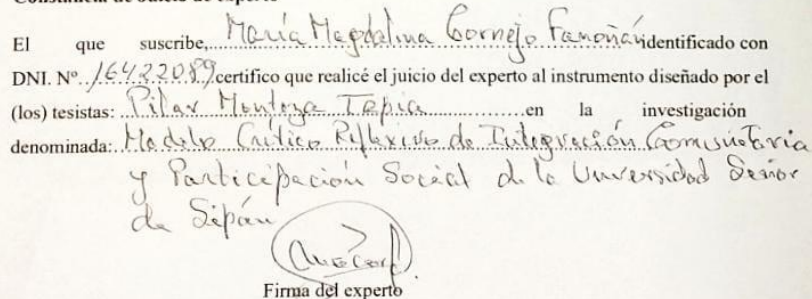 Constancia de Juicio de experto
El que suscribe, María Magdalina Cornejo Famoñan identificado con
DNI. Nº. 16422089 certifico que realicé el juicio del experto al instrumento diseñado por el
(los) tesistas: Pilar Montoza Tapia en la investigación
denominada: Modelo Crítico Reflexivo de Integración Comunitaria
y Participación Social de la Universidad Señor
de Sipán
Firma del experto